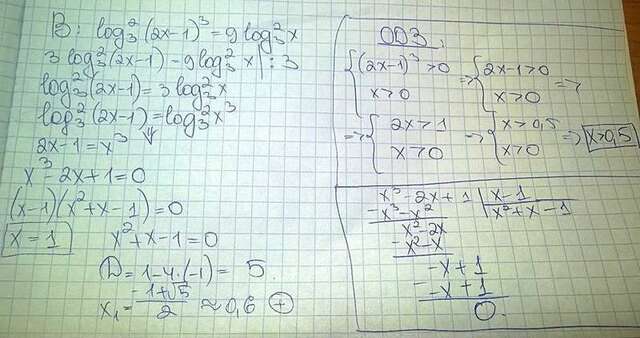 B: log₃²(2x-1)³ = 9 log₃² x
3 log₃²(2x-1) - 9 log₃² x | : 3
log₃²(2x-1) = 3 log₃² x
log₃²(2x-1) = log₃² x³
2x-1 = x³
x³ - 2x + 1 = 0
(x-1)(x²+x-1) = 0
x = 1 x² + x - 1 = 0
D = 1 - 4·(-1) = 5.
x₁ = (-1+√5)/2 ≈ 0,6 ⊕
ОДЗ:
{ (2x-1)³ > 0 => { 2x-1 > 0 =>
x > 0 x > 0
=> { 2x > 1 => { x > 0,5 => x > 0,5
x > 0 x > 0
x³ - 2x + 1 | x - 1
- x³ - x² x² + x - 1
x² - 2x
- x² - x
-x + 1
- -x + 1
0.